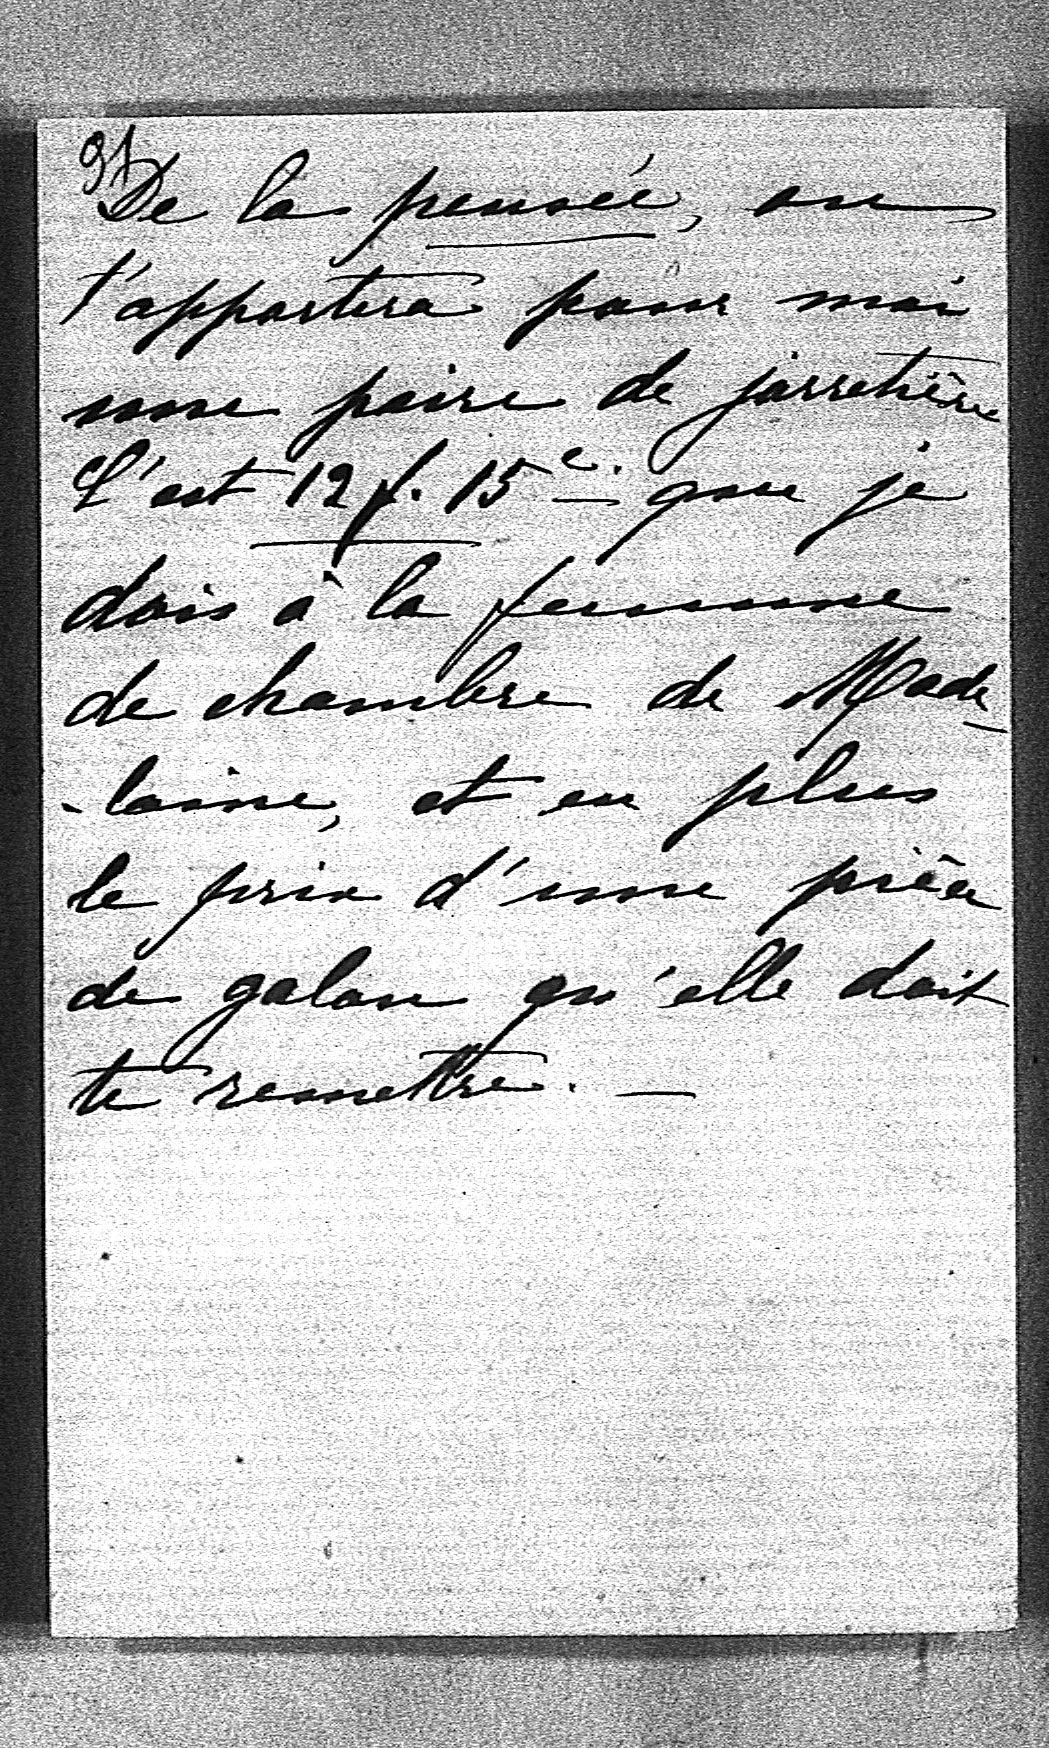 91
De la pensée, on
t'apportera pour moi
une paire de jarretière
C'est 12 f. 15 c. que je
dois à la femme
de chambre de Made
-laine, et en plus
le prix d'une pièce
de galon qu'elle doit
te remettre. —